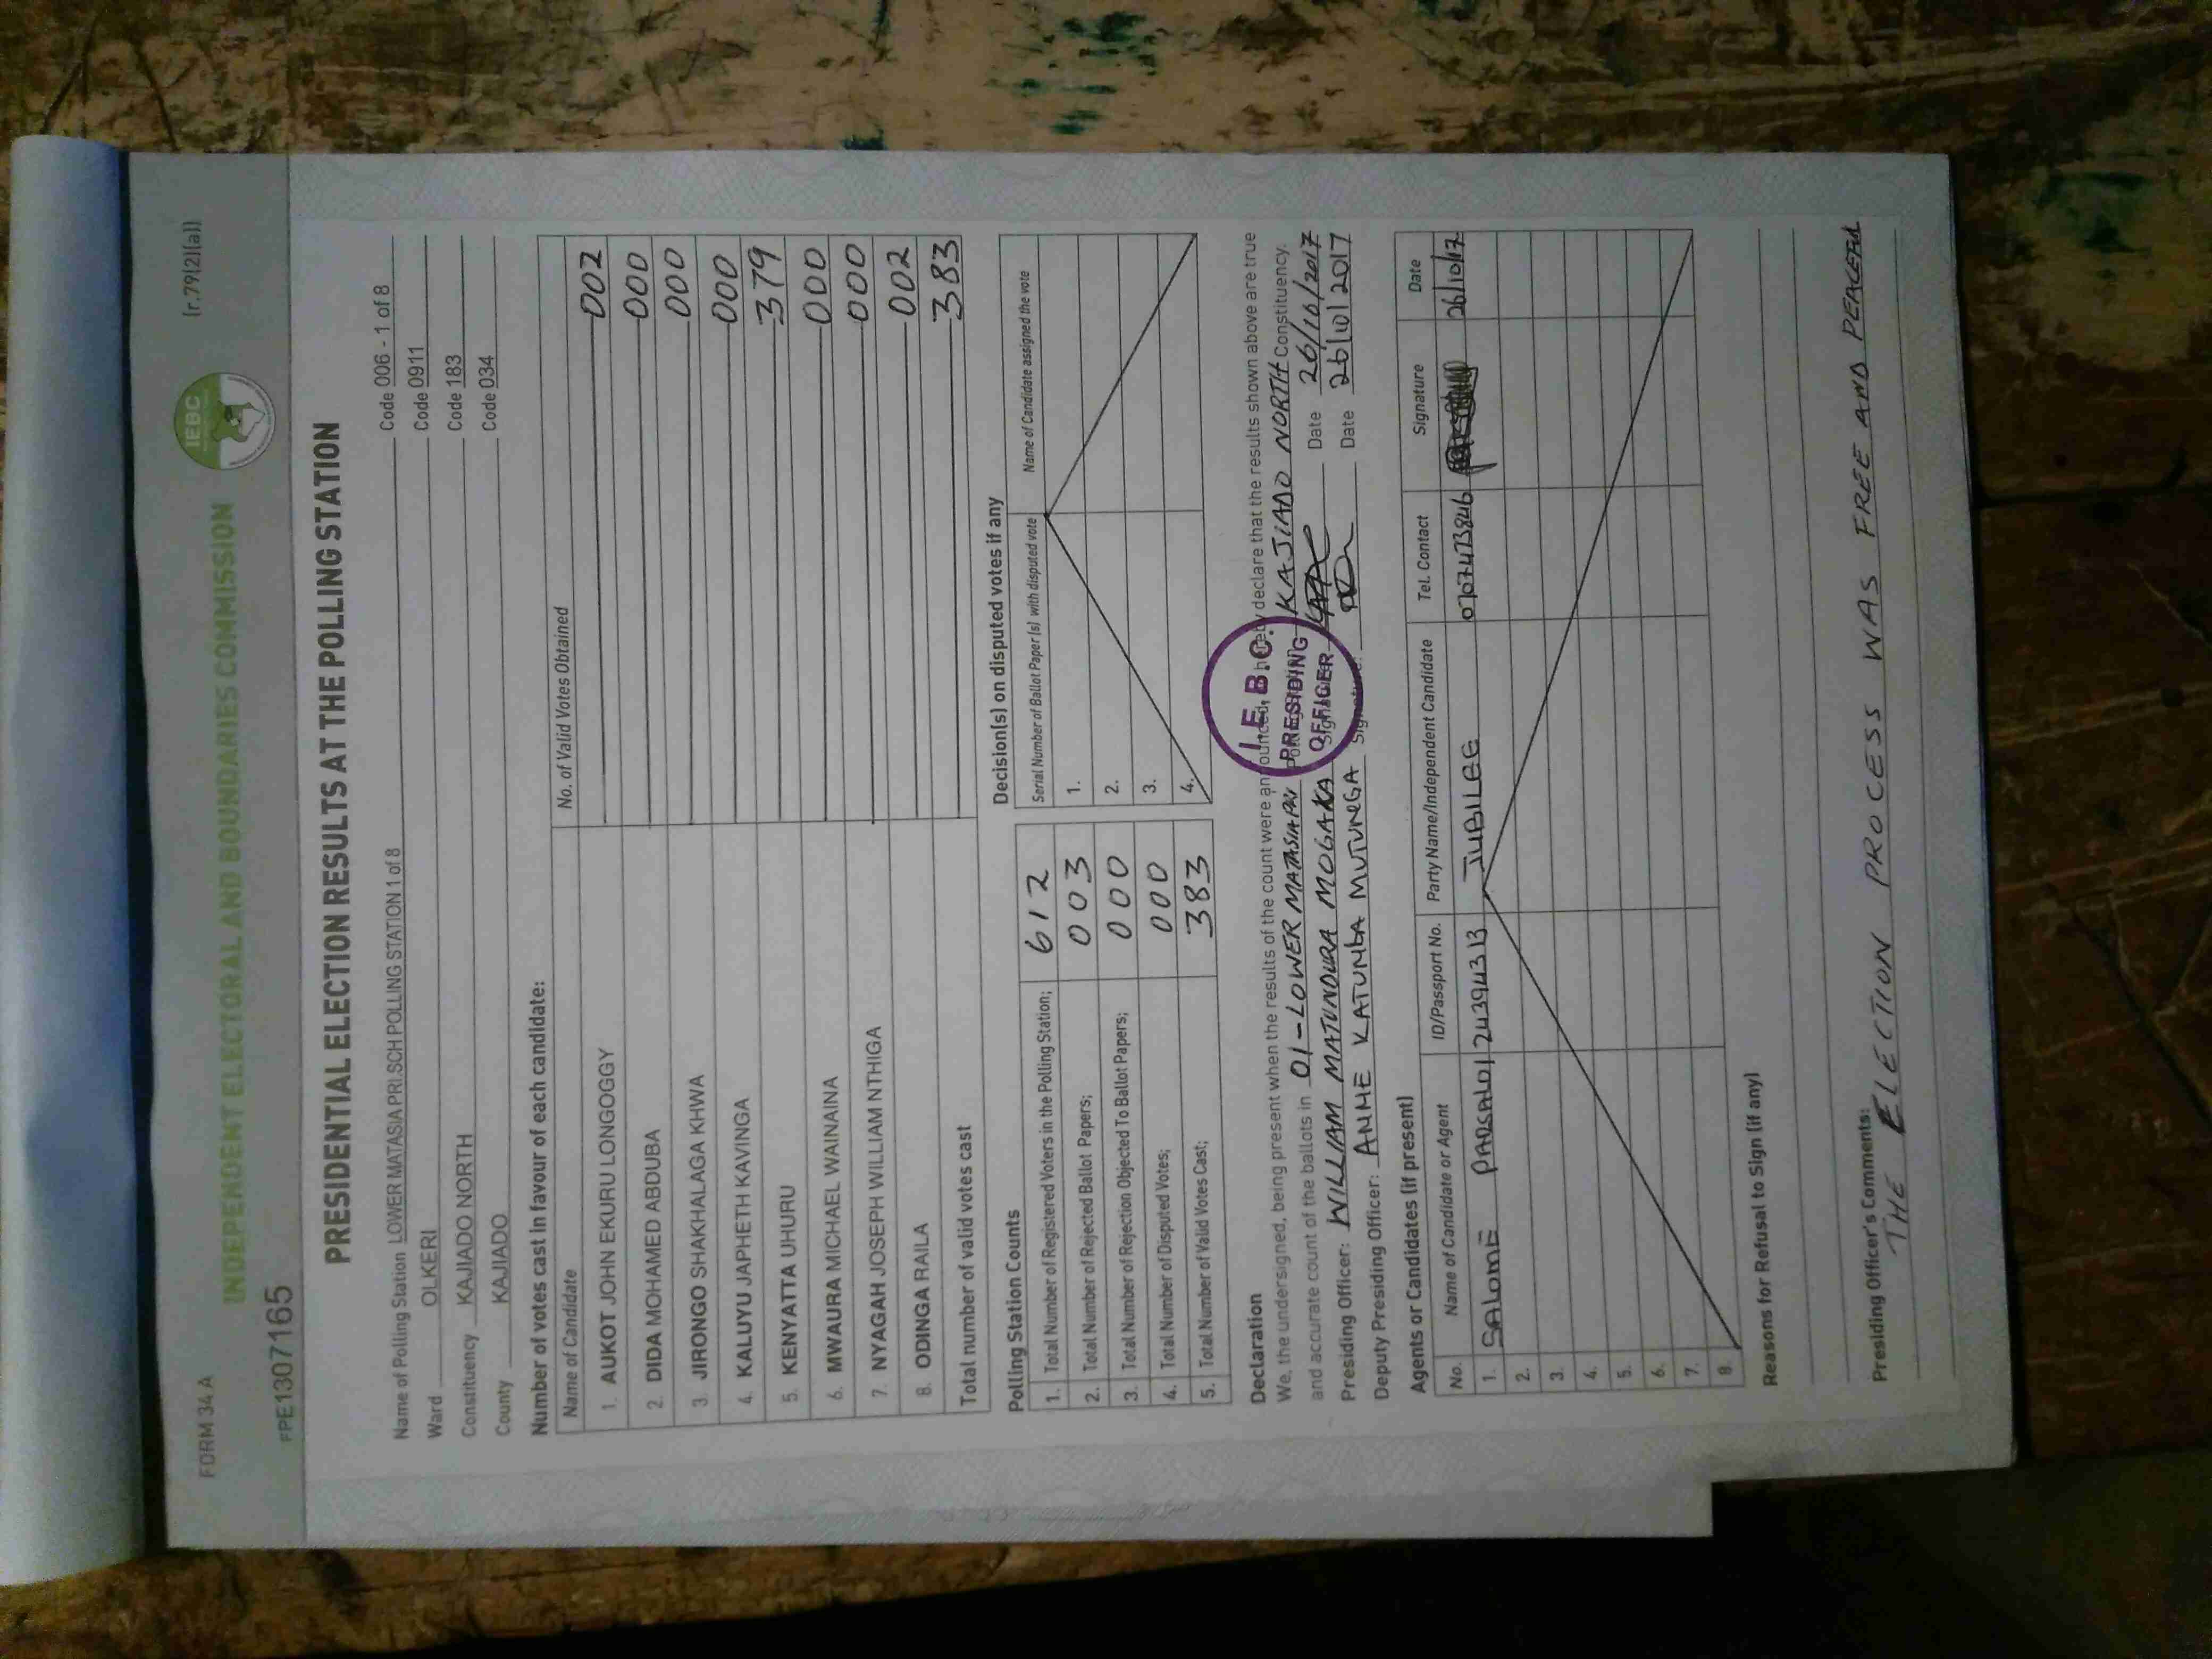 FORM 34 A
(r.79(2)(a))
INDEPENDENT ELECTORAL AND BOUNDARIES COMMISSION
IEBC
FPE1307165
PRESIDENTIAL ELECTION RESULTS AT THE POLLING STATION
Name of Polling Station LOWER MATASIA PRI.SCH POLLING STATION 1 of 8 Code 006 - 1 of 8
Ward OLKERI Code 0911
Constituency KAJIADO NORTH Code 183
County KAJIADO Code 034
Number of votes cast in favour of each candidate:
Name of Candidate No. of Valid Votes Obtained
1. AUKOT JOHN EKURU LONGOGGY 002
2. DIDA MOHAMED ABDUBA 000
3. JIRONGO SHAKHALAGA KHWA 000
4. KALUYU JAPHETH KAVINGA 000
5. KENYATTA UHURU 379
6. MWAURA MICHAEL WAINAINA 000
7. NYAGAH JOSEPH WILLIAM NTHIGA 000
8. ODINGA RAILA 002
Total number of valid votes cast 383
Polling Station Counts
1. Total Number of Registered Voters in the Polling Station; 612
2. Total Number of Rejected Ballot Papers; 003
3. Total Number of Rejection Objected To Ballot Papers; 000
4. Total Number of Disputed Votes; 000
5. Total Number of Valid Votes Cast; 383
Decision(s) on disputed votes if any
Serial Number of Ballot Paper(s) with disputed vote Name of Candidate assigned the vote
1.
2.
3.
4.
Declaration
We, the undersigned, being present when the results of the count were announced, hereby declare that the results shown above are true
and accurate count of the ballots in 01-LOWER MATASIA PRI KAJIADO NORTH Constituency.
Presiding Officer: WILLIAM MATUNDURA MOGAKA Signature: Date 26/10/2017
Deputy Presiding Officer: ANNE KATUNBA MUTUNGA Signature: Date 26/10/2017
I.E.B.C.
PRESIDING
OFFICER
Agents or Candidates (if present)
No. Name of Candidate or Agent ID/Passport No. Party Name/Independent Candidate Tel. Contact Signature Date
1. SALOME 24394313 JUBILEE 0707473846 26/10/17
2.
3.
4.
5.
6.
7.
8.
Reasons for Refusal to Sign (if any)
Presiding Officer's Comments:
THE ELECTION PROCESS WAS FREE AND PEACEFUL